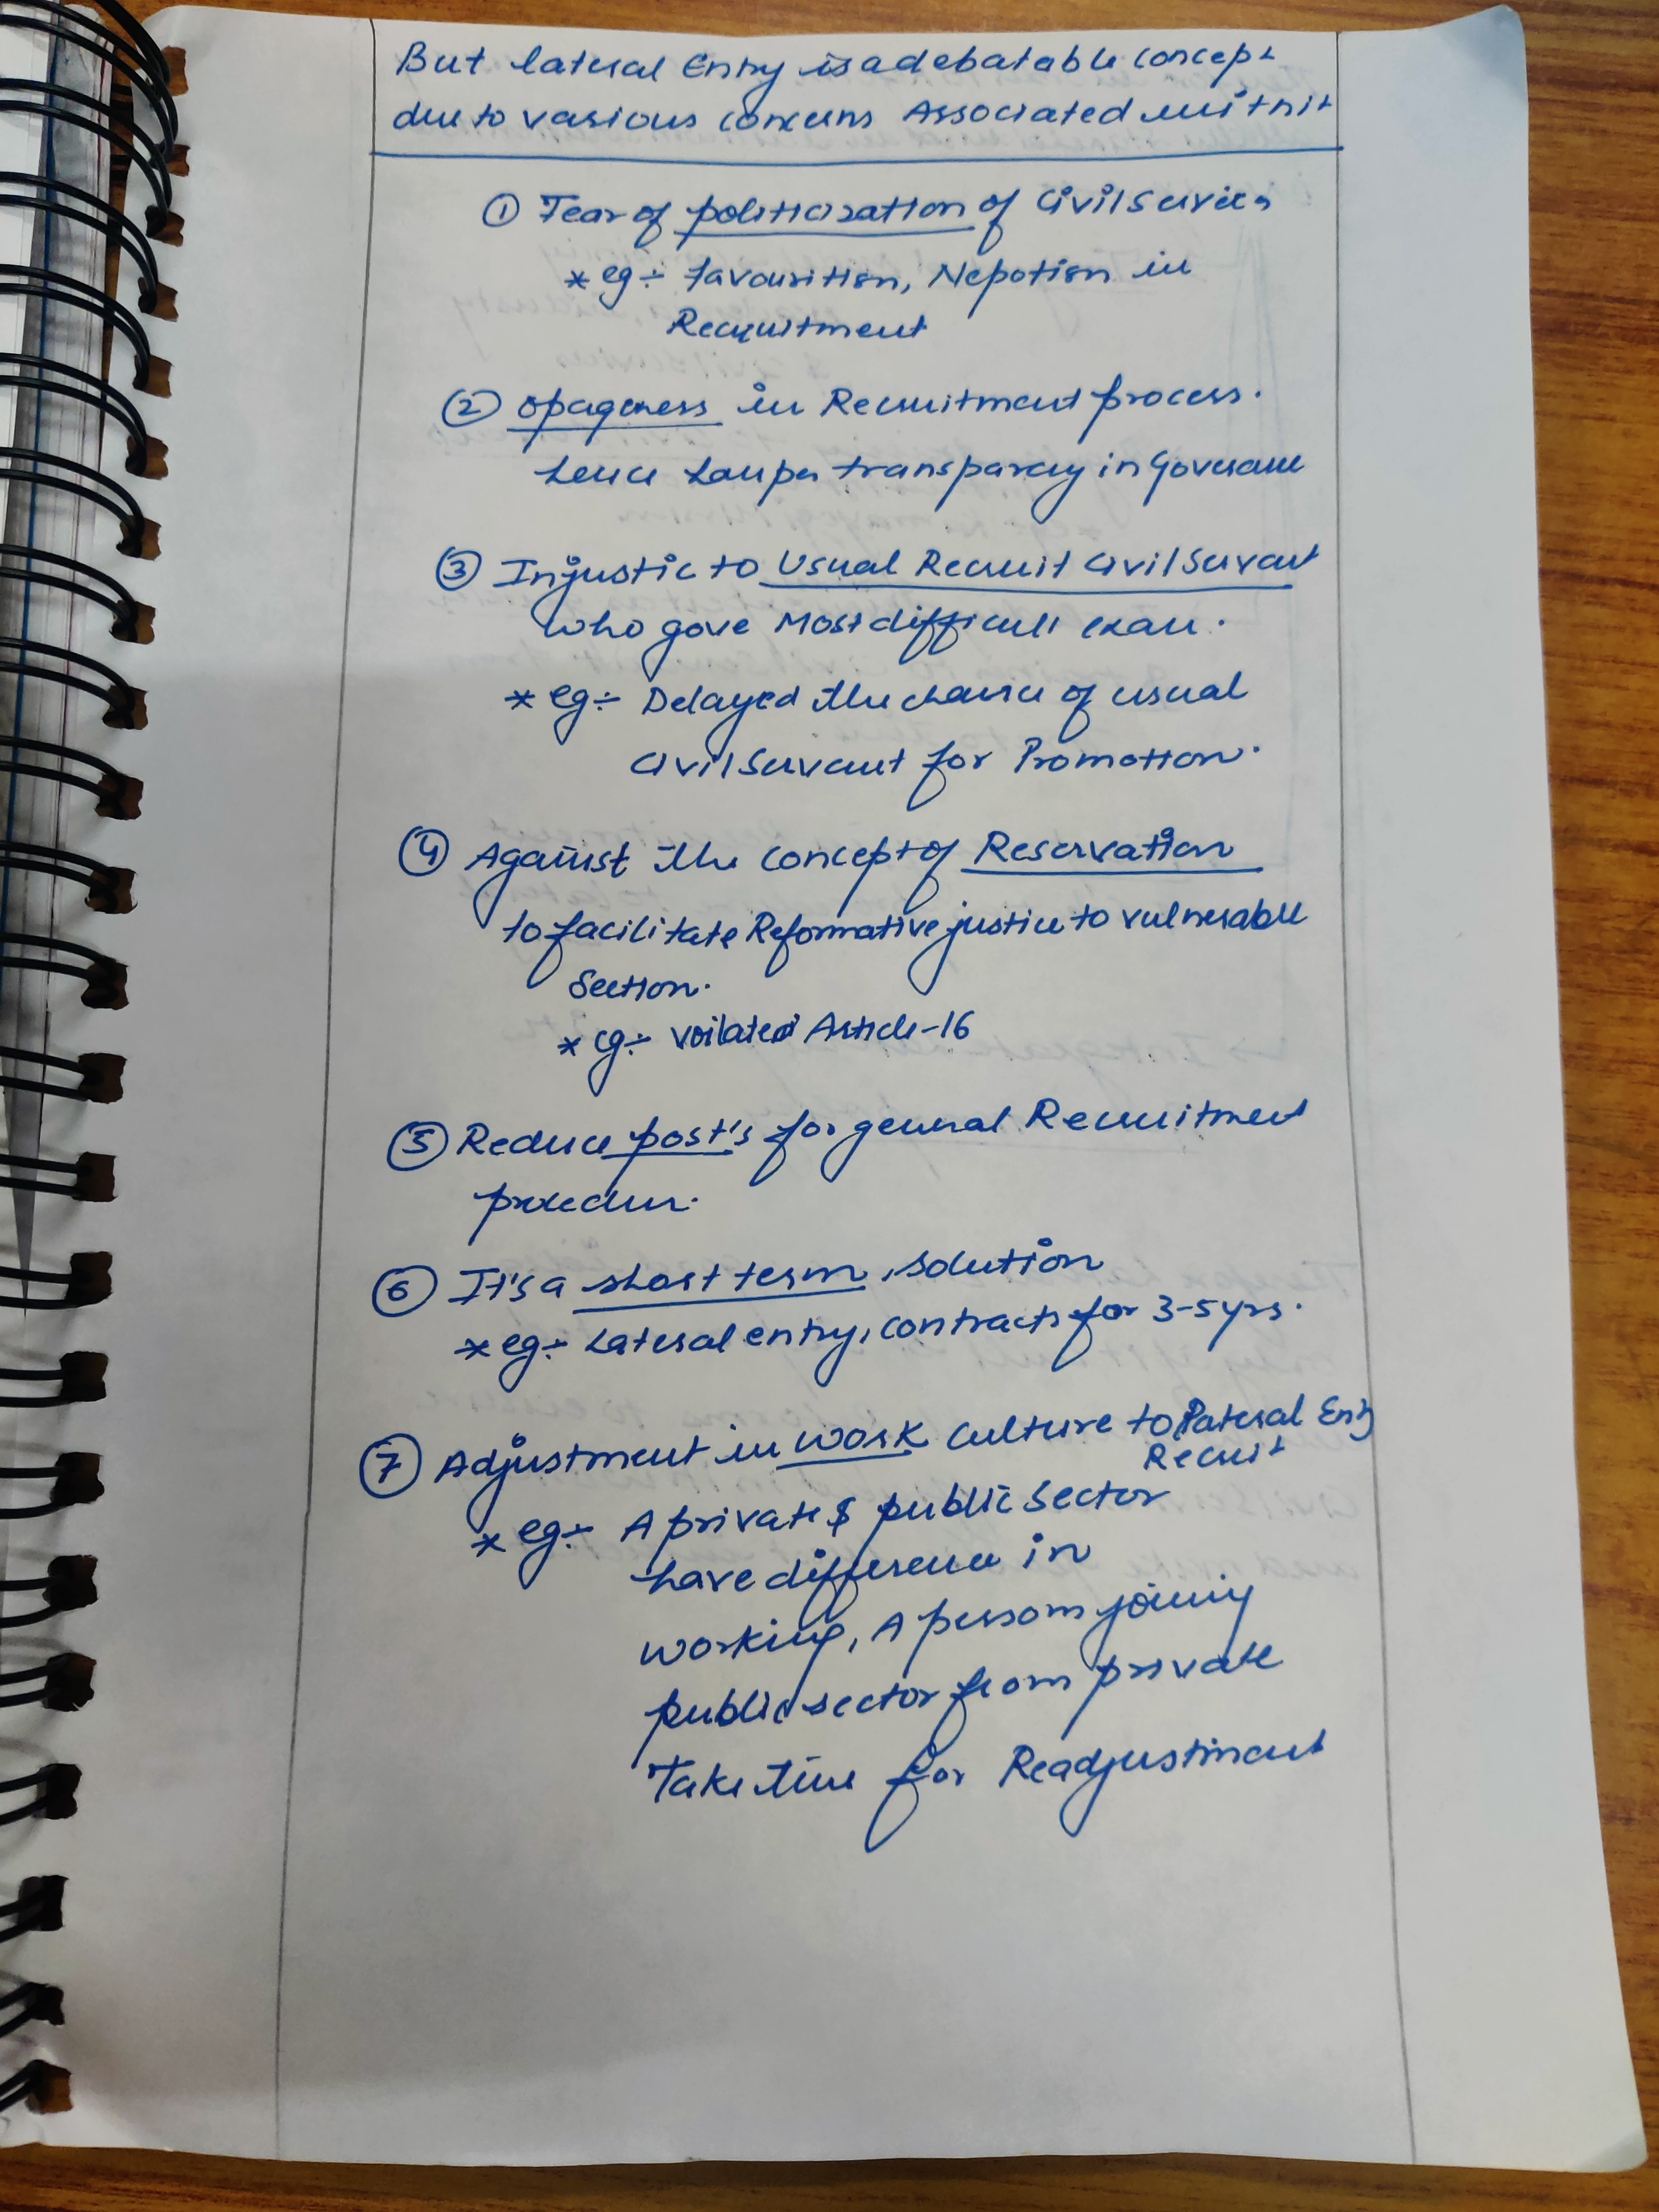 But lateral Entry is a debatable concept
due to various concerns Associated with it
① Fear of politicization of Civil Services
* eg ÷ favouritism, Nepotism in
Recruitment
② opaqeness in Recruitment process.
hence hamper transparency in Governance
③ Injustic to Usual Recruit Civil Servant
who gave Most difficult exam.
* eg ÷ Delayed the chance of usual
Civil Servant for Promotion.
④ Against the concept of Reservation
to facilitate Reformative justice to vulnerable
Section.
* eg ÷ voilated Article-16
⑤ Reduce post's for general Recruitment
procedure.
⑥ It's a short term solution
* eg ÷ Lateral entry, contracts for 3-5 yrs.
⑦ Adjustment in work culture to lateral Entry
Recruit
* eg ÷ A private & public Sector
have difference in
working, A person joining
public sector from private
Take time for Readjustment